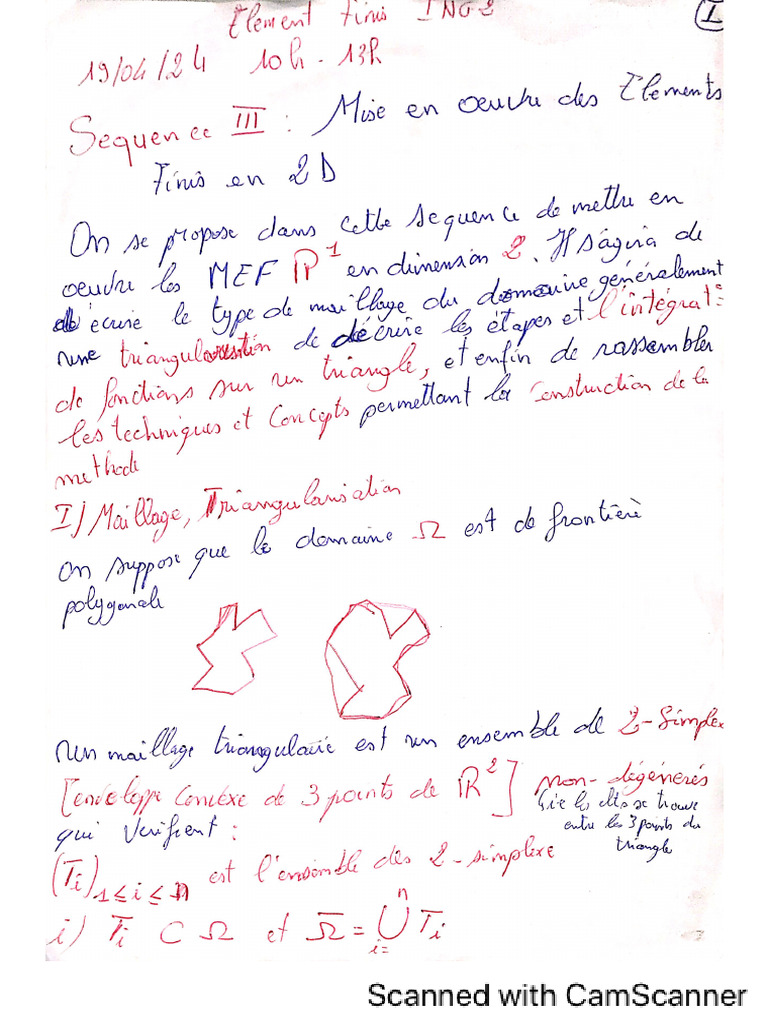 Element Finis ING2
1
19/04/24 10h - 13h
Sequence III : Mise en oeuvre des Elements
Finis en 2D
On se propose dans cette sequence de mettre en
oeuvre les MEF IP^1 en dimension 2. Il s'agira de
écrire le type de maillage du domaine généralement
une triangularisation de décrire les étapes et l'intégrat°
de fonctions sur un triangle, et enfin de rassembler
les techniques et Concepts permettant la Construction de la
methode
I) Maillage, Triangularisation
On suppose que le domaine Ω est de frontière
polygonale
Un maillage triangulaire est un ensemble de 2-Simplex
[enveloppe Convexe de 3 points de IR^2] non-dégénerés
qui Verifient :
ie les elts se trouve
entre les 3 points du
triangle
(Ti) 1≤i≤n est l'ensemble des 2-simplexe
i) Ti ⊂ Ω et Ω̄ = ⋃ i= n Ti
Scanned with CamScanner